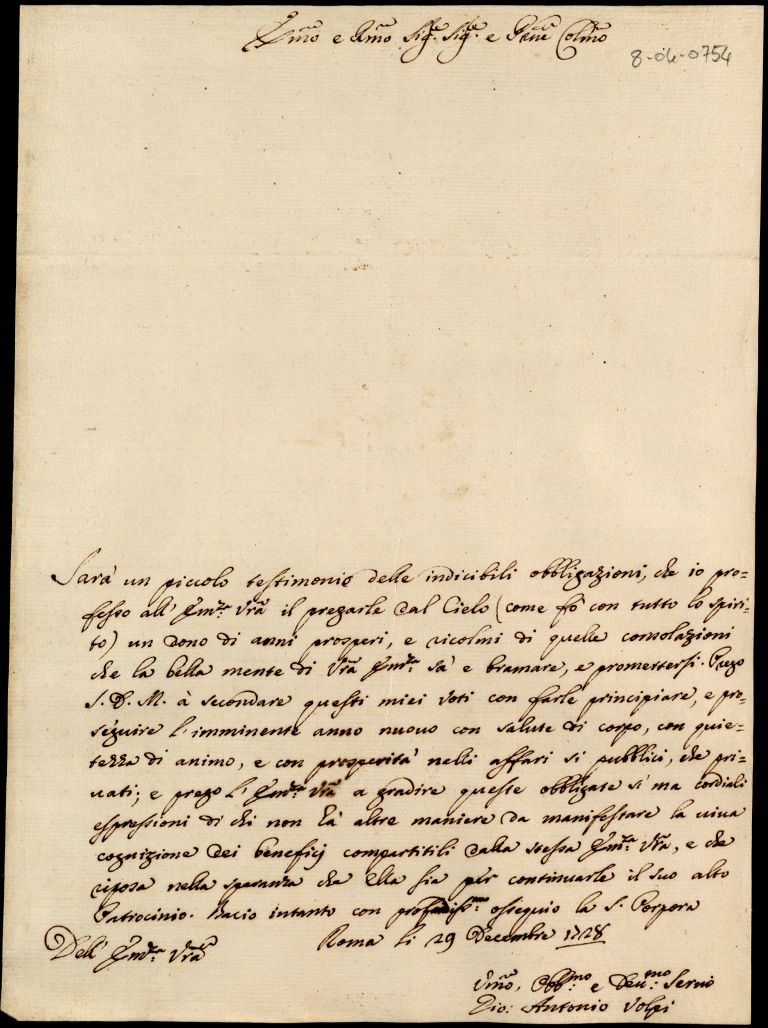 Emo e Rmo Sig.re Sig.re e Prne Colmo
8-04-0754
Sarà un piccolo testimonio delle indicibili obbligazioni, che io pro=
fesso all' Em.za Vra il pregarle dal Cielo (come fò con tutto lo spiri=
to) un dono di anni prosperi, e ricolmi di quelle consolazioni
che la bella mente di Vra Em.za sà e bramare, e promettersi. Prego
S. D. M. à secondare questi miei voti con farle principiare, e pro=
seguire l'imminente anno nuovo con salute di corpo, con quie=
tezza di animo, e con prosperità nelli affari sì pubblici, che pri=
vati; e prego l' Em.za Vra a gradire queste obbligate sì ma cordiali
espressioni di chi non hà altre maniere da manifestare la viva
cognizione dei beneficij compartitili dalla stessa Em.za Vra, e che
riposa nella speranza che Ella sia per continuarle il suo alto
Patrocinio. Bacio intanto con profondiss.mo ossequio la S. Porpora
Dell' Em.za Vra
Roma li 29 Decembre 1728
Vmo, Obb.mo e Dev.mo Servo
Gio: Antonio Volpi